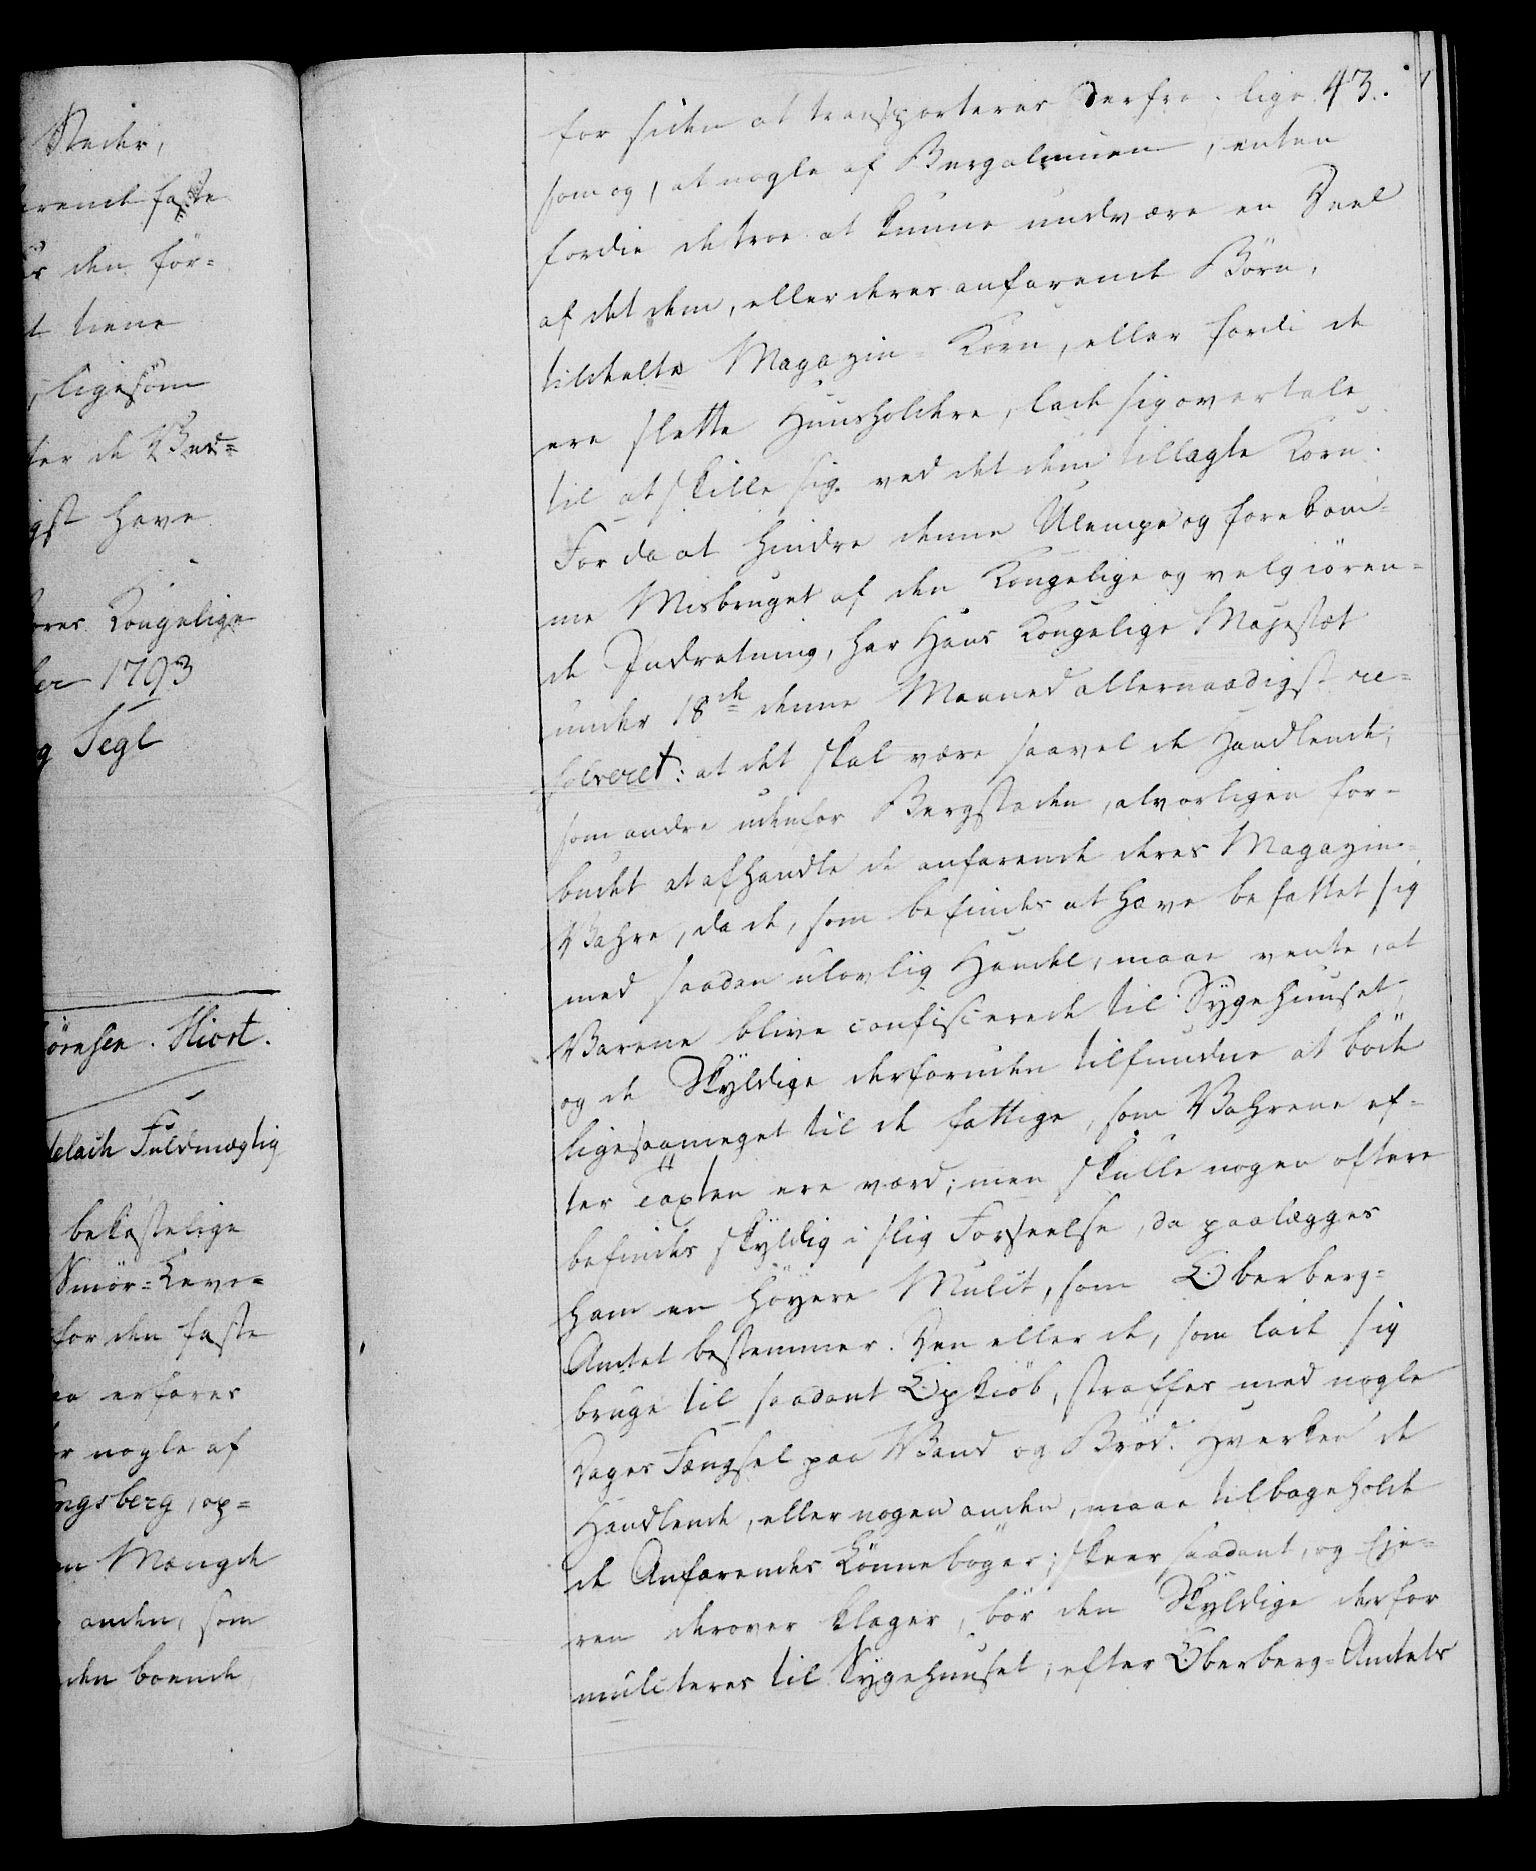 Steder,
erende faste
s den før=
t tiene
, ligesom
ter de Bud=
gst have
ores Kongelige
er 1793
g Segl
örnsen. Hiort.
Fuldmægtig
bekostelige
Smör=Leve=
for den faste
erfares
r nogle af
ngsberg, op=
en Mængde
anden, som
den boende,
43.
for siden at transporteres derfra. lige=
som og, at nogle af Bergalmuen, enten
fordie de troe at kunne undvære en Deel
af det dem, eller deres anfarende Börn,
tildeelte Magazin=Korn, eller fordi de
ere slette Huusholdere, lade sig overtale
til at skille sig ved det dem tillagte Korn.
For da at hindre denne Ulempe og forekom=
me Misbruget af den Kongelige og velgiören=
de Indretning, har Hans Kongelige Majestæt
under 18de denne Maaned allernaadigst re=
solveret: at det skal være saavel de Handlende,
som andre udenfor Bergstaden, alvorligen for=
budet at afhandle de anfarende deres Magazin=
Vahre, da de, som befindes at have befattet sig
med saadan ulovlig Handel, maae vente, at
Varene blive confiscerede til Sygehuuset,
og de Skyldige desforuden tilfundne at böde
ligesaameget til de fattige, som Vahrene ef=
ter Taxten ere værd; men skulle nogen oftere
befindes skyldig i slig Forseelse, da paalægges
ham en höyere Mulct, som Oberberg=
Amtet bestemmer. Den eller de, som lade sig
bruge til saadant Opkiöb, straffes med nogle
Dages Fængsel paa Vand og Bröd. Hverken de
Handlende, eller nogen anden, maae tilbageholde
de Anfarendes Lönneböger; skeer saadant, og Eje=
ren derover klager, bör den Skyldige derfor
mulcteres til Sygehuuset, efter Oberberg=Amtets